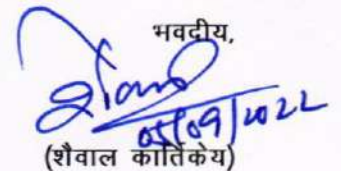 भवदीय,
05/09/2022
(शैवाल कार्तिकेय)